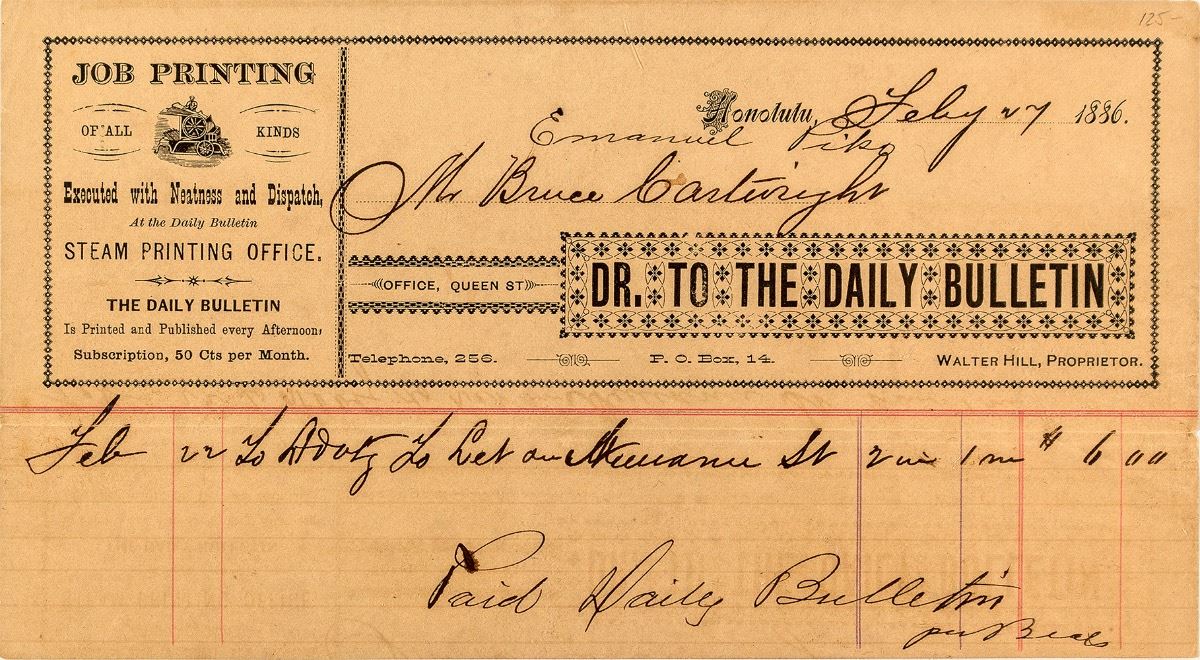 125-
JOB PRINTING
OF ALL KINDS
Executed with Neatness and Dispatch,
At the Daily Bulletin
STEAM PRINTING OFFICE.
THE DAILY BULLETIN
Is Printed and Published every Afternoon,
Subscription, 50 Cts per Month.
Honolulu, Feby 27 1886.
Emanuel
Mr Bruce Cartwright
OFFICE, QUEEN ST
DR. TO THE DAILY BULLETIN
Telephone, 256. P. O. Box, 14. WALTER HILL, PROPRIETOR.
Feb 22 To Advtg To Let on Nuuanu St 2 in 1 m $ 6 00
Paid Daily Bulletin
per